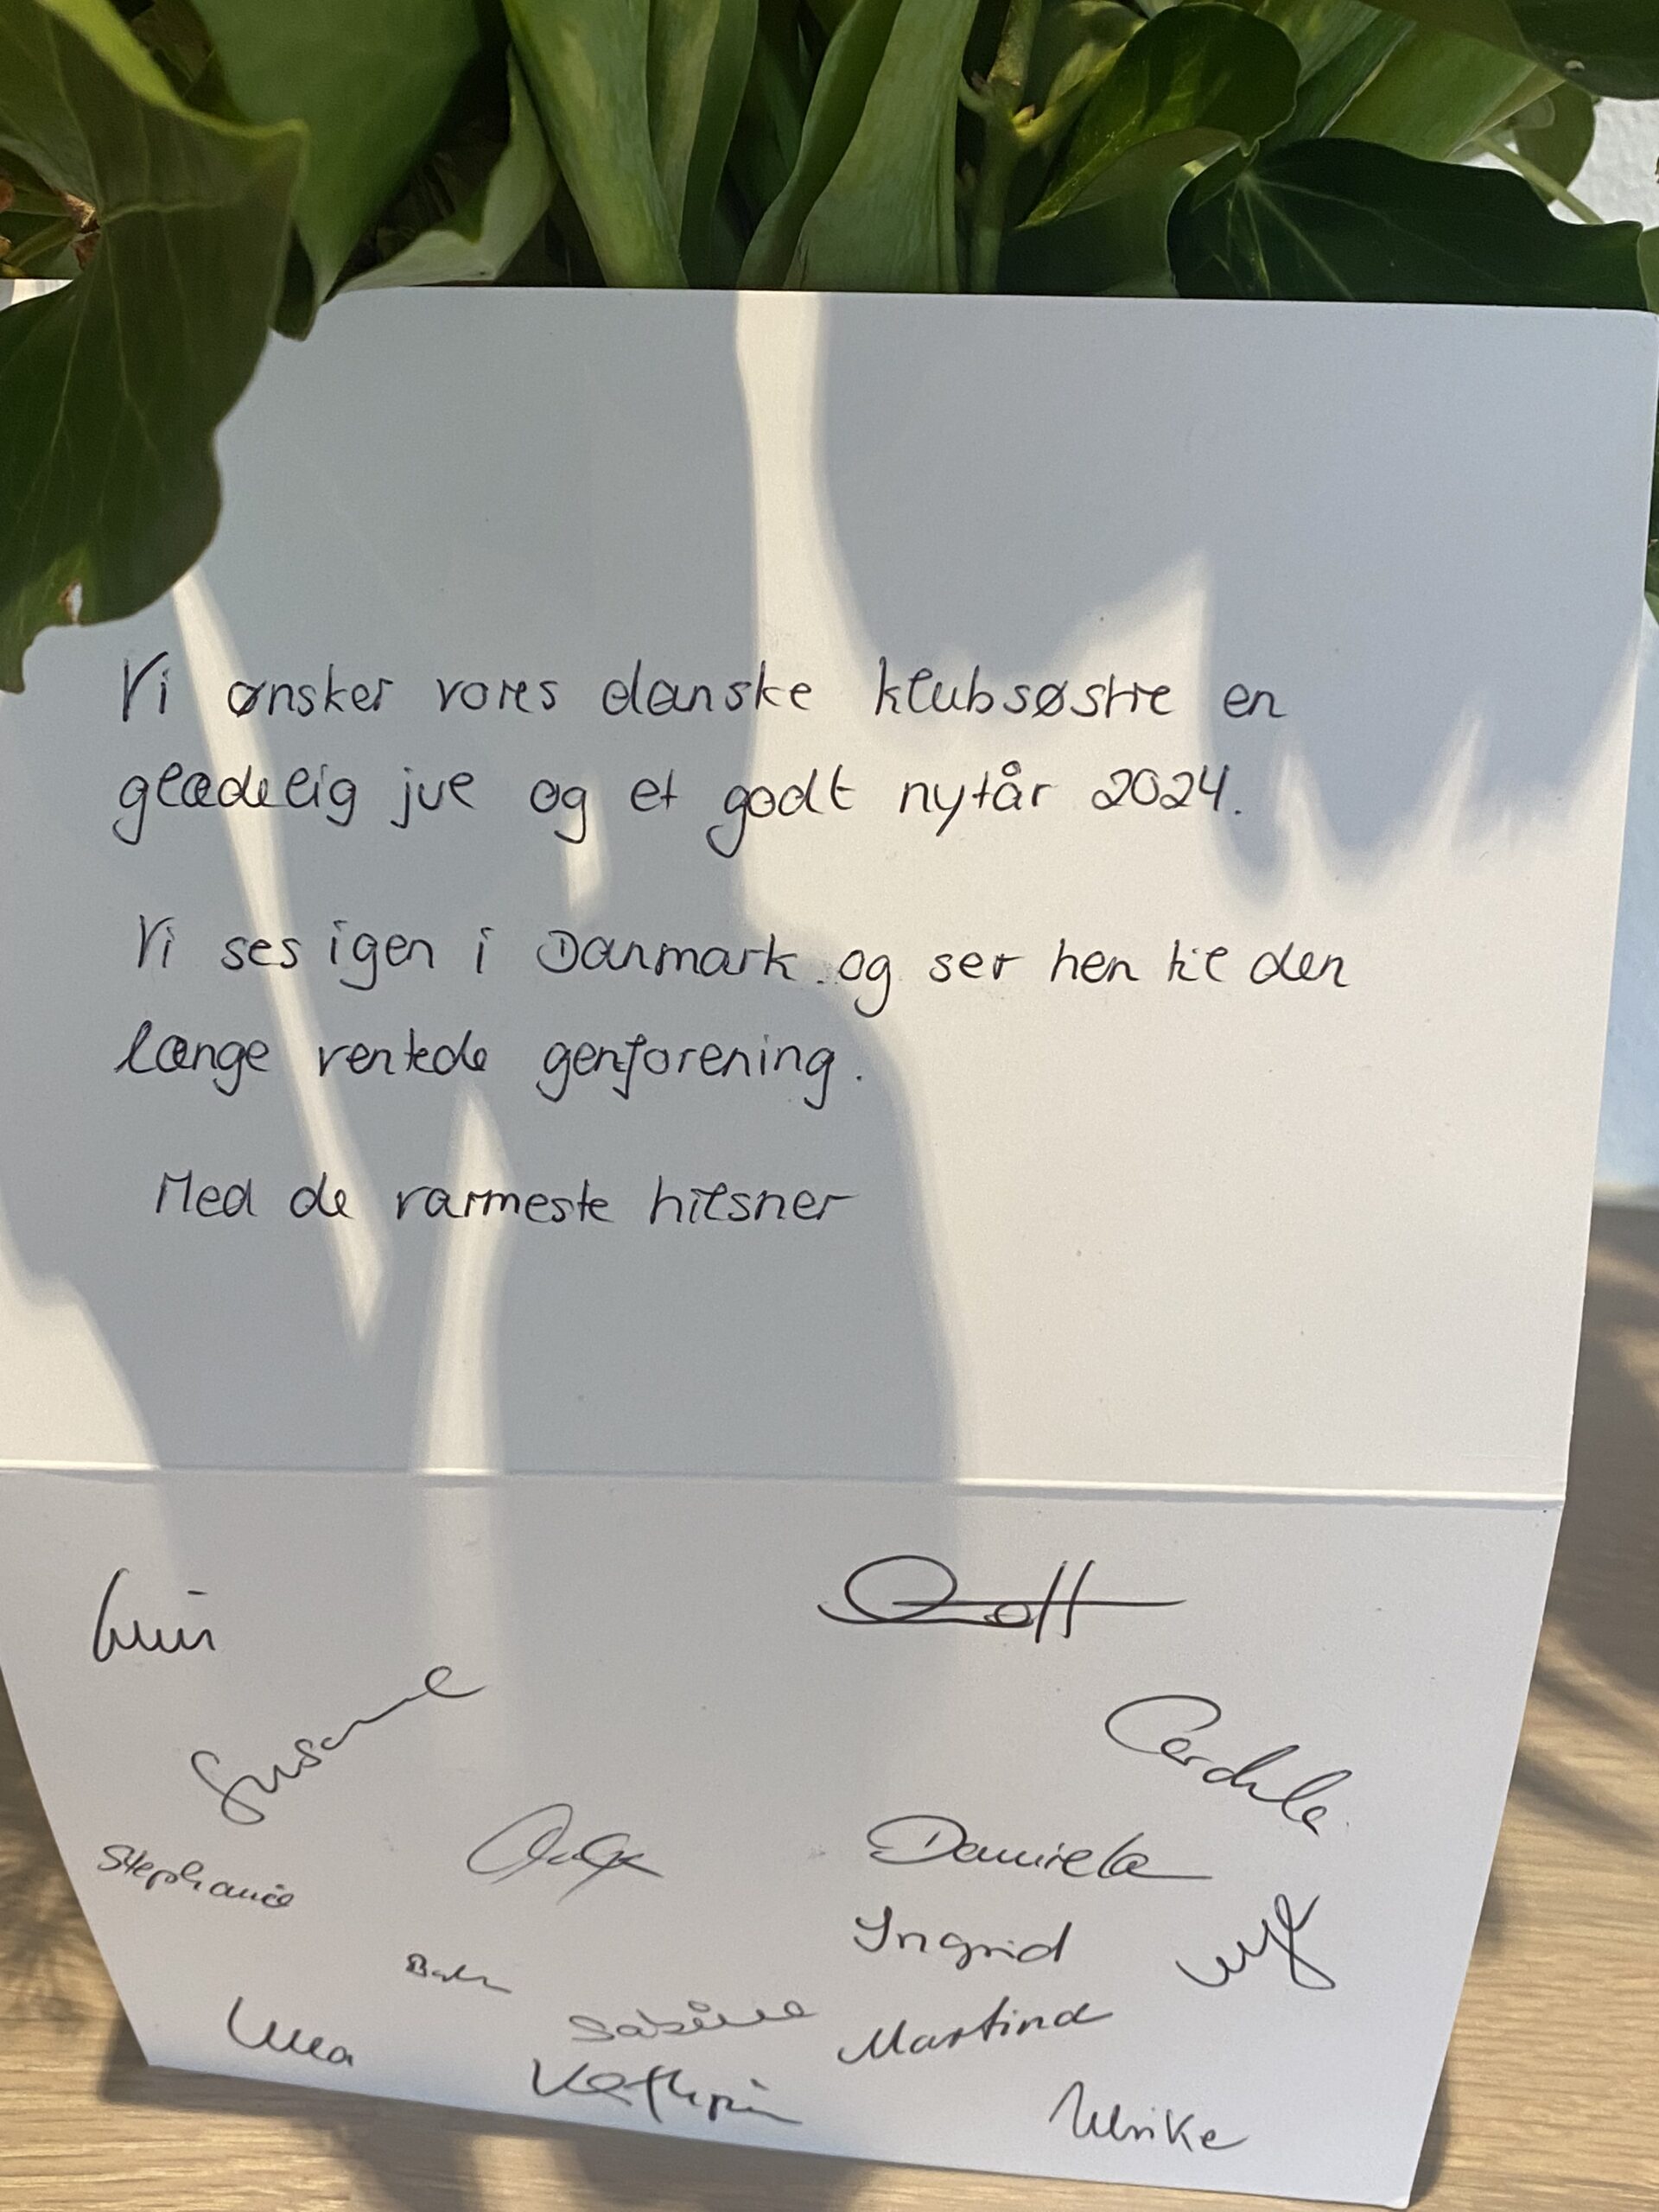 Vi ønsker vores danske klubsøstre en
glædelig jul og et godt nytår 2024.
Vi ses igen i Danmark og ser hen til den
længe ventede genforening.
Med de varmeste hilsner
Susanne
Daniela
Stephanie
Ingrid
Sabine
Martina
Kathrin
Ulrike